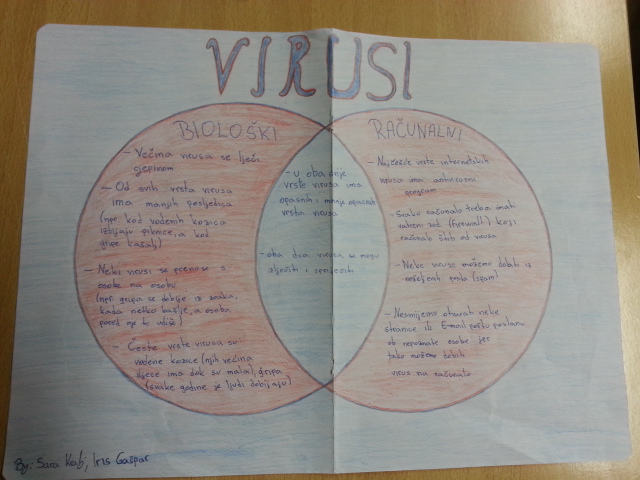 VIRUSI
BIOLOŠKI
- Većina virusa se liječi
cjepivom
- Od svih vrsta virusa
ima manjih posljedica
(npr. kod vodenih kozica
izbijaju prištevi, a kod
gripe kašalj)
- Neki virusi se prenose s
osobe na osobu
(npr. gripa se dobije iz zraka,
kada netko kašlje, a osoba
pored nje to udiše)
- Česte vrste virusa su:
vodene kozice (njih većina
djece ima dok su mala), gripa
(svake godine je ljudi dobijaju)
- U oba dvije
vrste virusa ima
opasnih i manje opasnih
vrsta virusa
- oba dva virusa se mogu
izliječiti i spriječiti
RAČUNALNI
- Najčešće vrste internetskih
virusa ima antivirusni
program
- Svako računalo treba imati
vatreni zid (firewall) koji
računalo štiti od virusa
- Neke viruse možemo dobiti iz
neželjenih pošta (spam)
- Nesmijemo otvarat neke
stranice ili E-mail poštu poslanu
od nepoznate osobe jer
tako možemo dobiti
virus na računalo
By: Sara, Iris Gašpar